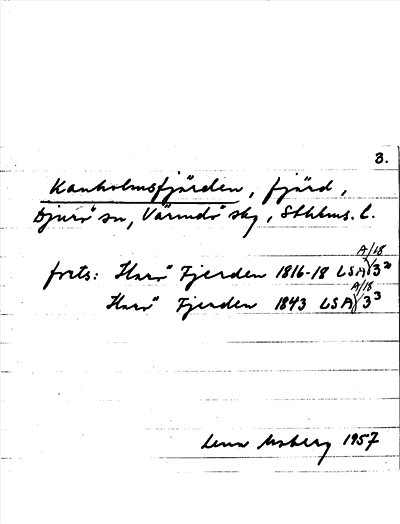 3.
Kanholmsfjärden, fjärd,
Djurö sn, Värmdö skg, Sthlms. l.
A/18
forts: Harö Fjerden 1816-18 LSA 3²
A/18
Harö Fjerden 1843 LSA 3³
Lena 1957